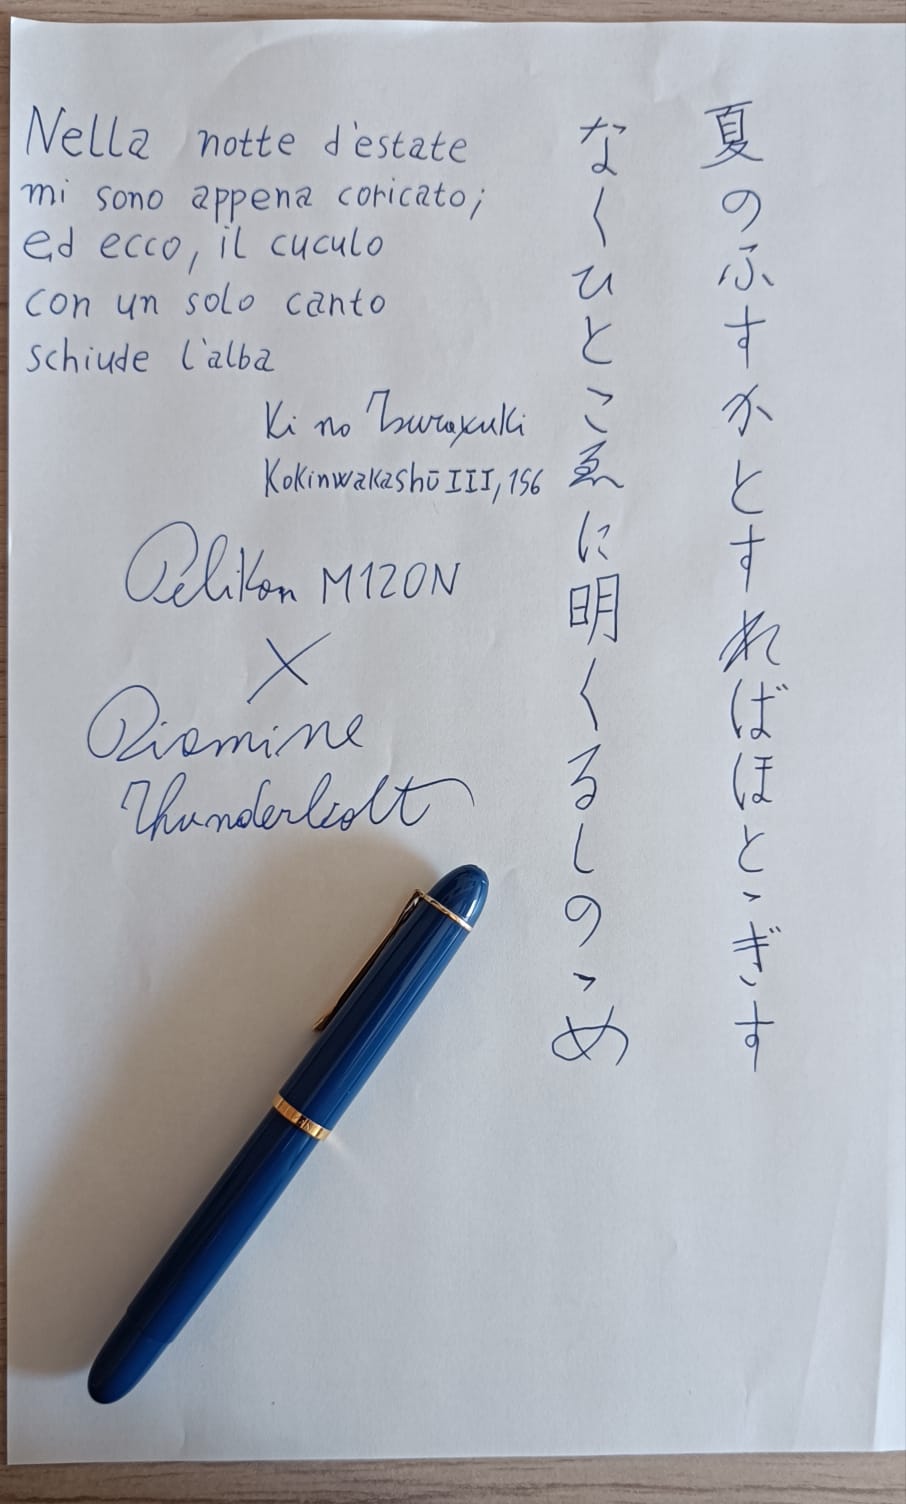 Nella notte d'estate
mi sono appena coricato;
ed ecco, il cuculo
con un solo canto
schiude l'alba
Ki no Tsurayuki
Kokinwakashū III, 156
Pelikan M120N
X
Diamine
Thunderbolt
夏のふすかとすればほとゝぎす
なくひとこゑに明くるしのゝめ